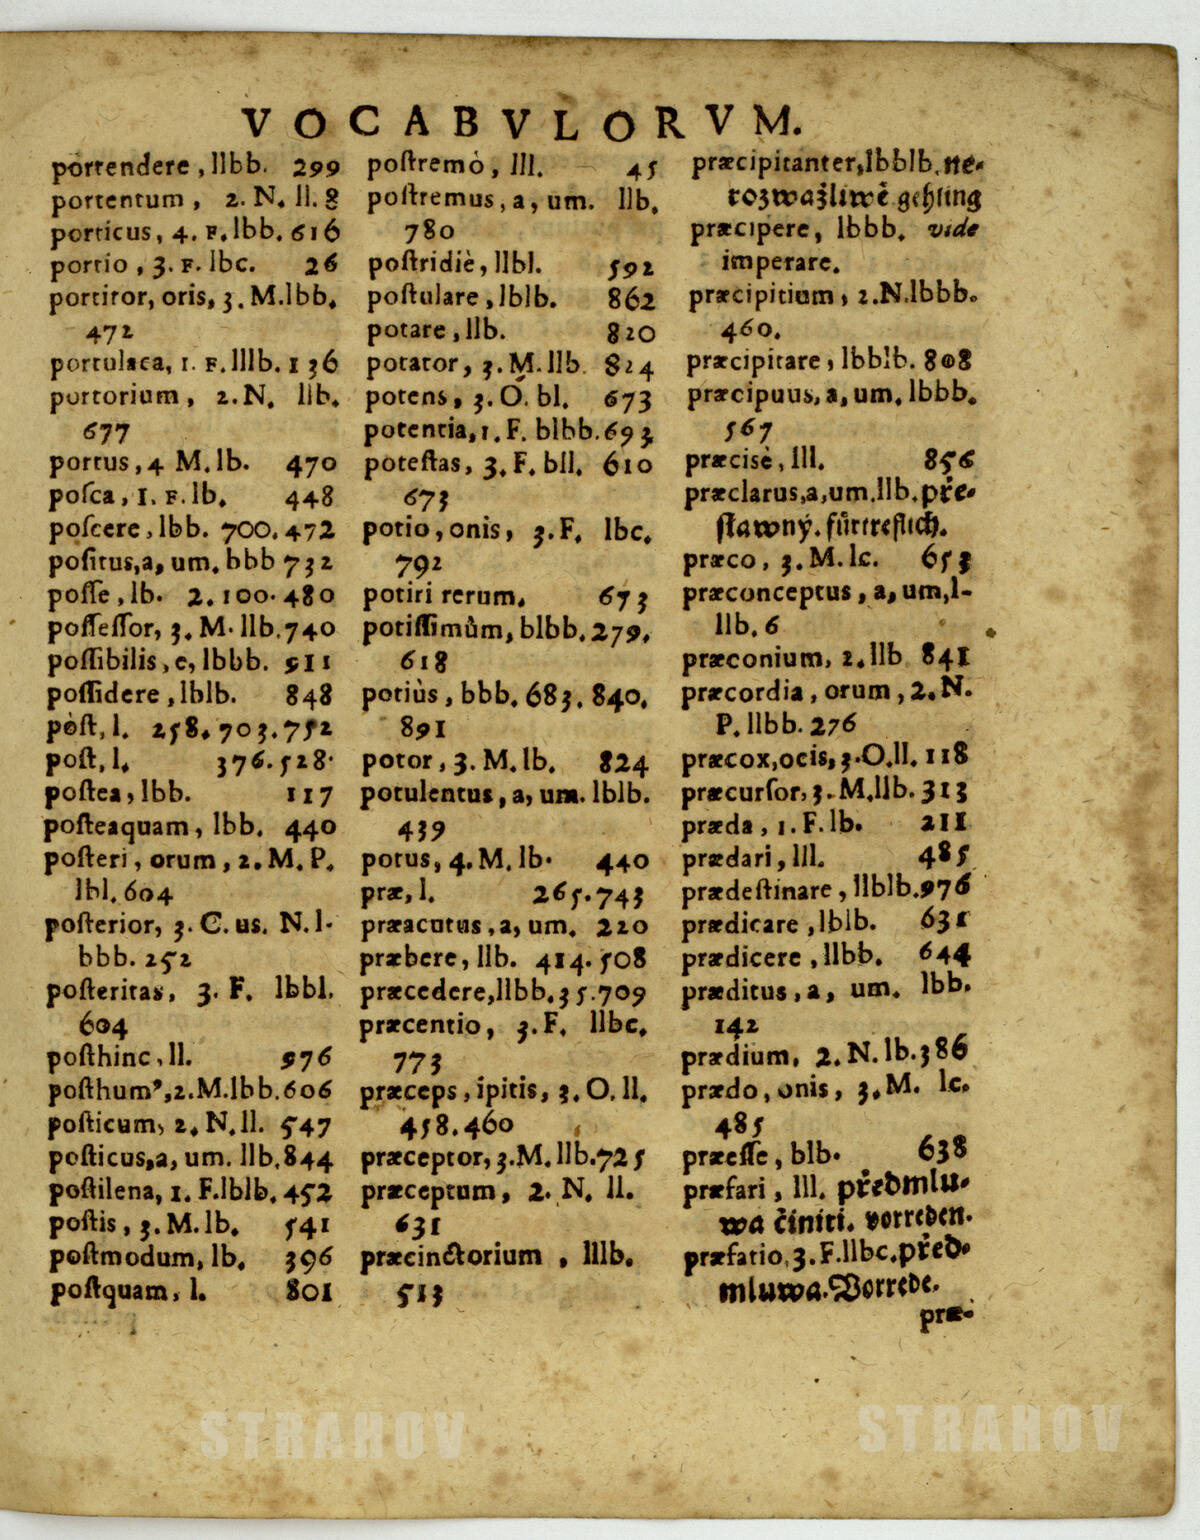 VOCABVLORVM.
portendere, llbb. 299
portentum, 2. N. ll. 8
porticus, 4. F. lbb. 616
portio, 3. F. lbc. 26
portitor, oris, 3. M. lbb.
472
portulaca, 1. F. lllb. 136
portorium, 2. N. llb.
677
portus, 4 M. lb. 470
poſca, 1. F. lb. 448
poſcere, lbb. 700. 472
poſitus, a, um. bbb 732
poſſe, lb. 2. 100. 480
poſſeſſor, 3. M. llb. 740
poſſibilis, e, lbbb. 911
poſſidere, lblb. 848
pòſt, l. 258. 703. 752
poſt, l. 376. 528.
poſtea, lbb. 117
poſteaquam, lbb. 440
poſteri, orum, 2. M. P.
lbl. 604
poſterior, 3. C. us. N. l-
bbb. 252
poſteritas, 3. F. lbbl.
604
poſthinc, ll. 976
poſthumꝰ, 2. M. lbb. 606
poſticum, 2. N. ll. 547
poſticus, a, um. llb. 844
poſtilena, 1. F. lblb. 452
poſtis, 3. M. lb. 541
poſtmodum, lb. 396
poſtquam, l. 801
poſtremò, lll. 45
poſtremus, a, um. llb.
780
poſtridiè, llbl. 592
poſtulare, lblb. 862
potare, llb. 820
potator, 3. M. llb. 824
potens, 3. O. bl. 673
potentia, 1. F. blbb. 693
poteſtas, 3. F. bll. 610
673
potio, onis, 3. F. lbc.
792
potiri rerum. 673
potiſſimùm, blbb. 279.
618
potiùs, bbb. 683. 840.
891
potor, 3. M. lb. 824
potulentus, a, um. lblb.
439
potus, 4. M. lb. 440
præ, l. 265. 743
præacutus, a, um. 220
præbere, llb. 414. 508
præcedere, llbb. 35. 709
præcentio, 3. F. llbc.
773
præceps, ipitis, 3. O. ll.
458. 460
præceptor, 3. M. llb. 725
præceptum, 2. N. ll.
631
præcinctorium, lllb.
513
præcipitanter, lbblb. ne-
rozwažliwě gehling
præcipere, lbbb. vide
imperare.
præcipitium, 2. N. lbbb.
460.
præcipitare, lbblb. 808
præcipuus, a, um. lbbb.
567
præcisè, lll. 856
præclarus, a, um. llb. pře-
ſlawný. fürtreflich.
præco, 3. M. lc. 653
præconceptus, a, um, l-
llb. 6
præconium, 2. llb 841
præcordia, orum, 2. N.
P. llbb. 276
præcox, ocis, 3. O. ll. 118
præcurſor, 3. M. llb. 313
præda, 1. F. lb. 211
prædari, lll. 485
prædeſtinare, llblb. 976
prædicare, lblb. 631
prædicere, llbb. 644
præditus, a, um. lbb.
142
prædium, 2. N. lb. 386
prædo, onis, 3. M. lc.
485
præeſſe, blb. 638
præfari, lll. předmlu-
wa činiti. vorreden.
præfatio, 3. F. llbc. před-
mluwa. Vorrede.
præ-
STRAHOV STRAHOV